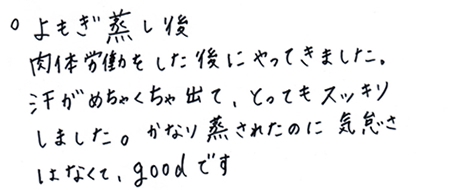 ○ よもぎ蒸し後
肉体労働をした後にやってきました。
汗がめちゃくちゃ出て、とってもスッキリ
しました。かなり蒸されたのに気怠さ
はなくて、goodです